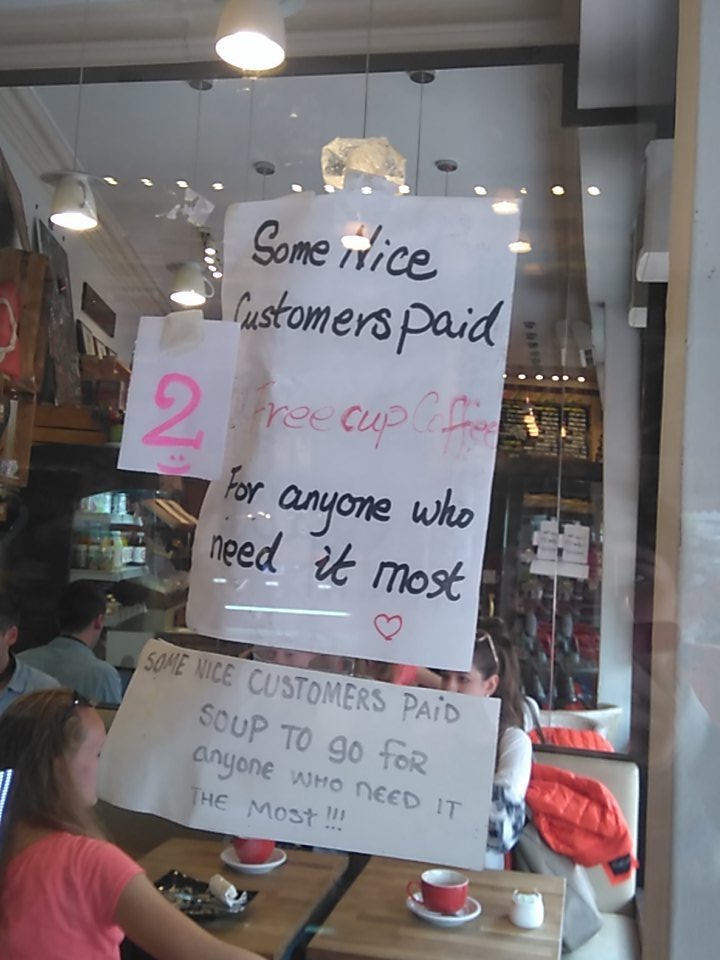 Some Nice
Customers paid
2 Free cup Coffee
For anyone who
need it most
SOME NICE CUSTOMERS PAiD
SOUP TO go FOR
anyone WHO nEED IT
THE MOST!!!